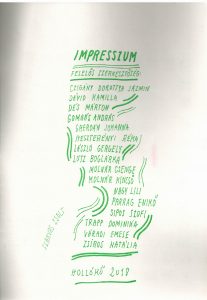 IMPRESSIUM
FELELŐS SZERKESZTŐSÉG:
CZIGÁNY DOROTTYA JÁZMIN
DÁVID KAMILLA
DÉS MÁRTON
GOMBOS ANDRÁS
SHERDÁN JOHANNA
MESTERHÉNY
LÁSZLÓ GERGELY
BOGLÁRKA
MOLNÁR CSENGE
MOLNÁR KINCSŐ
NAGY LILI
PARRAG ENIKŐ
SIPOS ZSÓFI
TRAPP DOMINIKA
VÁRADI EMESE
ZSIROS NATÁLIA
HOLLÓKŐ 2018